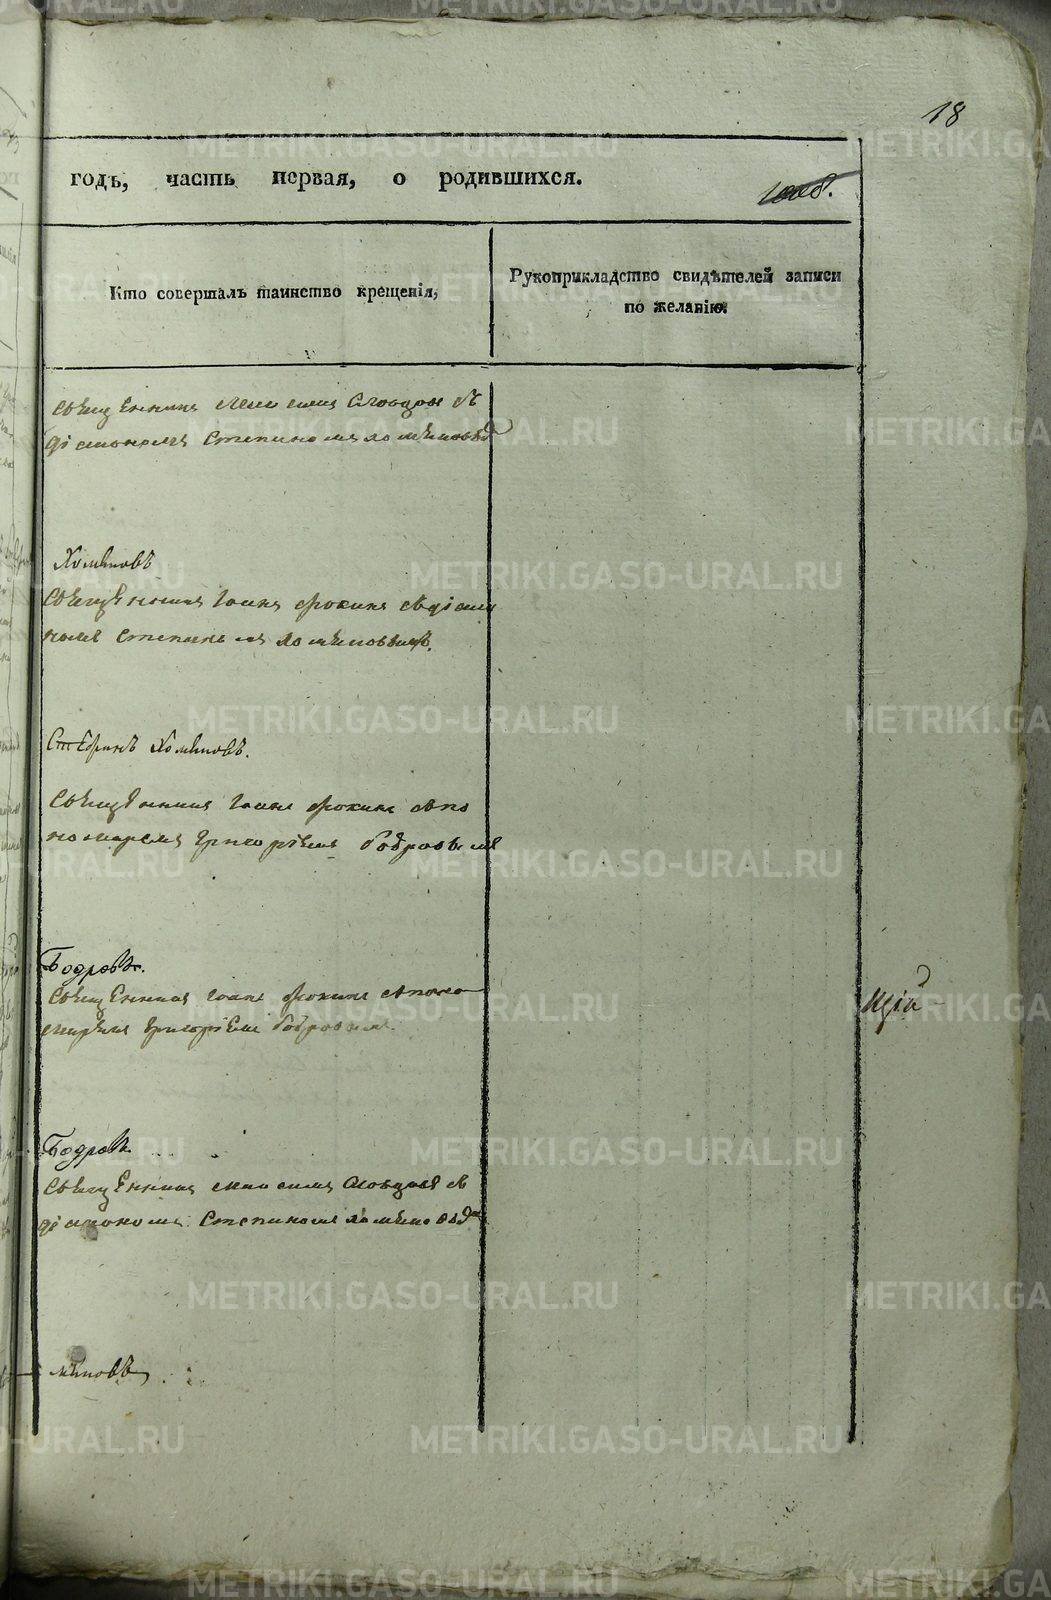 18
годъ, часть первая, о родившихся.
Кто совершалъ таинство крещенія,
Рукоприкладство свидѣтелей записи
по желанію.
священникъ Максимъ Словцовъ съ
діакономъ Стефаномъ Хомяковымъ
Хомяковъ
священникъ Іоаннъ Фокинъ съ діако
номъ Стефаномъ Хомяковымъ.
Хомяковъ.
священникъ Іоаннъ Фокинъ съ по
номаремъ Григоріемъ Бодровымъ
Бодровъ.
священникъ Іоаннъ Фокинъ съ поно
маремъ Григоріемъ Бодровымъ.
щій
Бодровъ
священникъ Максимъ Словцовъ съ
діакономъ Стефаномъ Хомяковымъ
мяковъ
METRIKI.GASO-URAL.RU